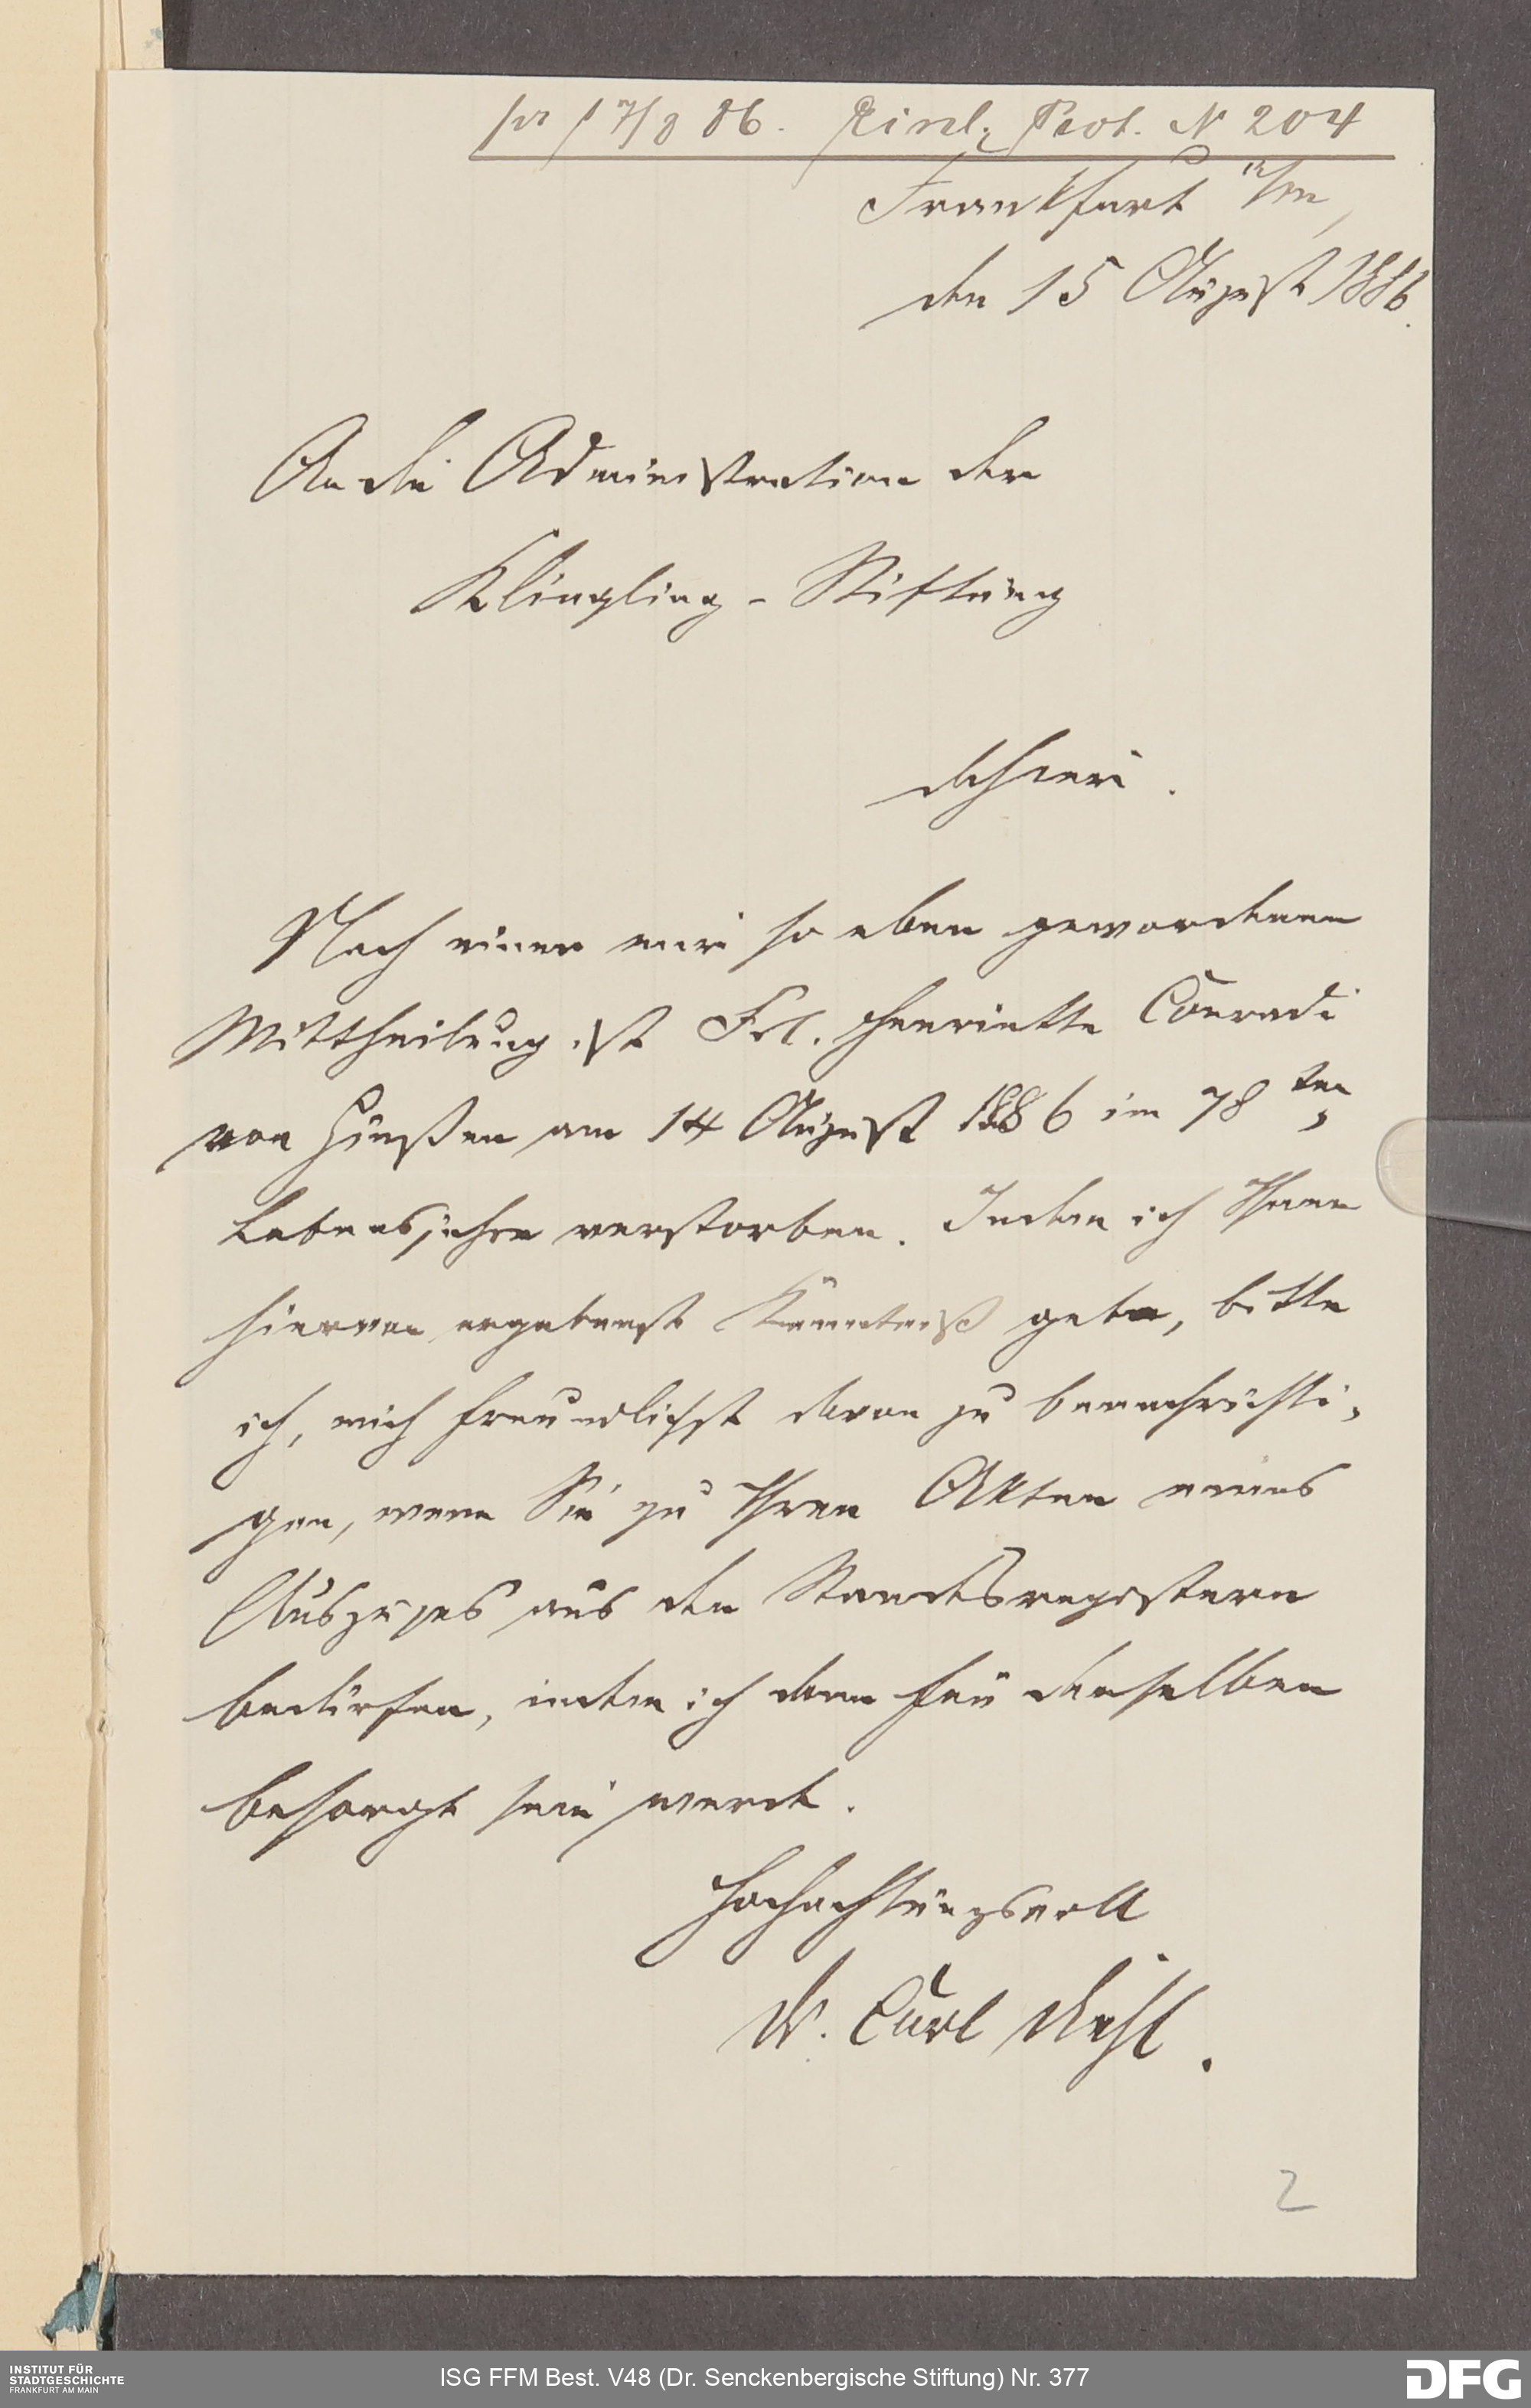 pr 17/8 86. Einl. Prot. N 204
Frankfurt a/m,
den 15 August 1886.
An die Administration der
Klingling-Stiftung
dahier.
Nach einer mir so eben gewordenen
Mittheilung ist Frl. Henriette Conradi
von Gießen am 14 August 1886 im 78ten
Lebensjahre verstorben. Indem ich Ihnen
hiervon ergebenst Kenntniß gebe, bitte
ich, mich freundlichst davon zu benachrichti-
gen, wenn Sie zu Ihren Akten eines
Auszuges aus den Standesregistern
bedürfen, indem ich dann für denselben
besorgt sein werde.
Hochachtungsvoll
Dr. Carl
2
INSTITUT FÜR
STADTGESCHICHTE
FRANKFURT AM MAIN
ISG FFM Best. V48 (Dr. Senckenbergische Stiftung) Nr. 377
DFG